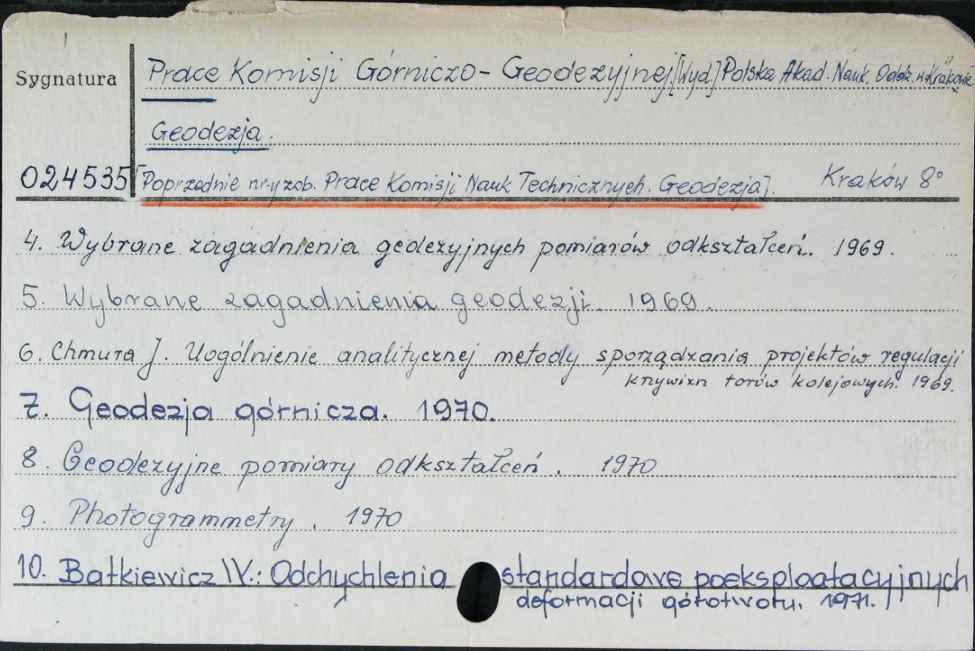 Sygnatura
Prace Komisji Górniczo-Geodezyjnej [Wyd.] Polska Akad. Nauk. Oddz. w Krakowie
Geodezja.
024535 [Poprzednie nr-y zob. Prace Komisji Nauk Technicznych. Geodezja]. Kraków 8°
4. Wybrane zagadnienia geodezyjnych pomiarów odkształceń. 1969.
5. Wybrane zagadnienia geodezji. 1969.
6. Chmura J. Uogólnienie analitycznej metody sporządzania projektów regulacji
krzywizn torów kolejowych. 1969.
7. Geodezja górnicza. 1970.
8. Geodezyjne pomiary odkształceń. 1970
9. Photogrammetry. 1970
10. Batkiewicz W.: Odchychlenia standardowe poeksploatacyjnych
deformacji górotworu. 1971.